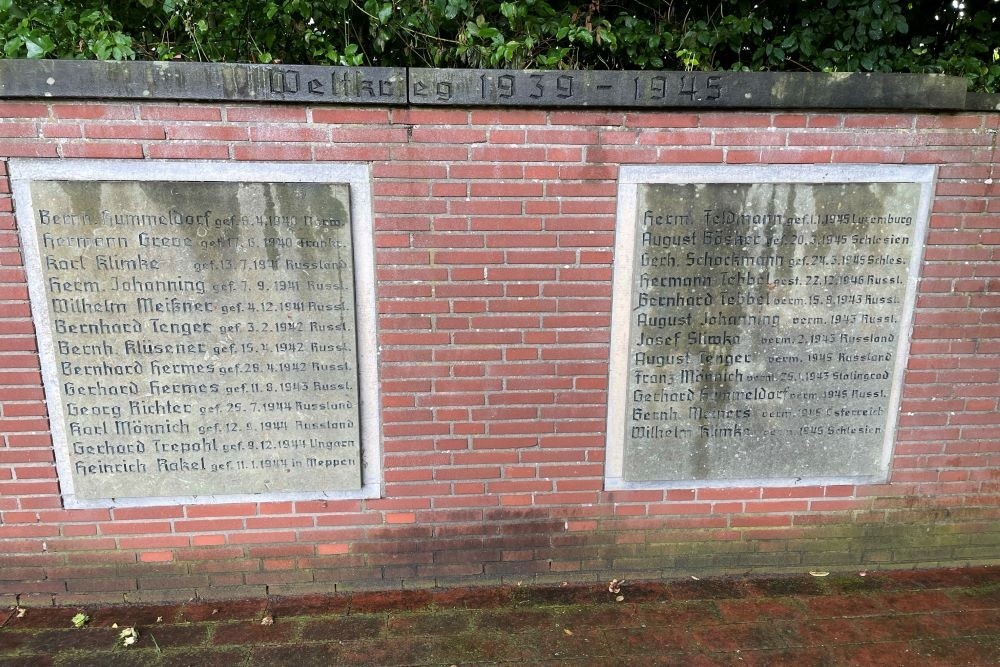 Weltkrieg 1939 - 1945
Bernh. Hummeldorf gef. 9.4.1940 Norw.
Hermann Greve gef. 17.6.1940 Frankr.
Karl Klimke gef. 13.7.1941 Russland
Herm. Johanning gef. 7.9.1941 Russl.
Wilhelm Meißner gef. 4.12.1941 Russl.
Bernhard Tenger gef. 3.2.1942 Russl.
Bernh. Klüsener gef. 15.4.1942 Russl.
Bernhard Hermes gef. 28.4.1942 Russl.
Gerhard Hermes gef. 11.8.1943 Russl.
Georg Richter gef. 25.7.1944 Russland
Karl Mönnich gef. 12.9.1944 Russland
Gerhard Trepohl gef. 9.12.1944 Ungarn
Heinrich Rakel gef. 11.1.1944 in Meppen
Herm. Feldmann gef. 1.1.1945 Luxemburg
August Gösker gef. 20.3.1945 Schlesien
Gerh. Schockmann gef. 24.3.1945 Schles.
Hermann Tebbel gest. 22.12.1946 Russl.
Bernhard Tebbel verm. 15.9.1943 Russl.
August Johanning verm. 1943 Russl.
Josef Sliwka verm. 2.1943 Russland
August Tenger verm. 1945 Russland
Franz Mönnich verm. 25.1.1943 Stalingrad
Gerhard Hummeldorf verm. 1945 Russl.
Bernh. Meiners verm. 1945 Österreich
Wilhelm Klimke verm. 1945 Schlesien